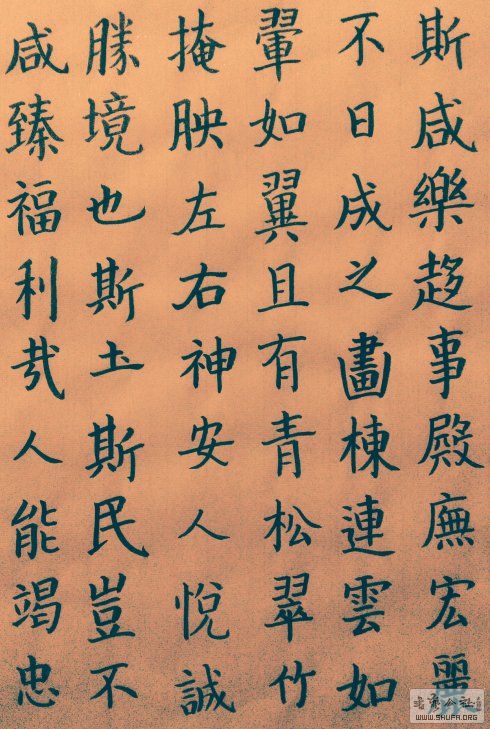 斯咸樂趍事殿廡宏麗
不日成之畫棟連雲如
翬如翼且有青松翠竹
掩映左右神安人悅誠
勝境也斯土斯民豈不
咸臻福利哉人能竭忠
WWW.SHUFA.ORG